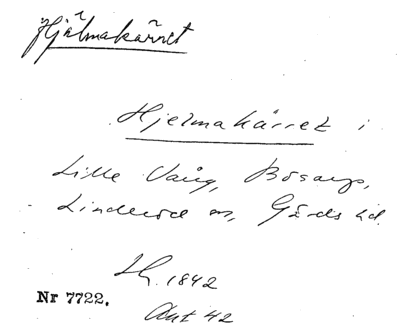 Hjälmakärret
Hjelmakärret i
Lille Vång, Bosarp,
Linderöd sn, Gärds hd.
LH. 1842
Nr 7722.
Akt 42